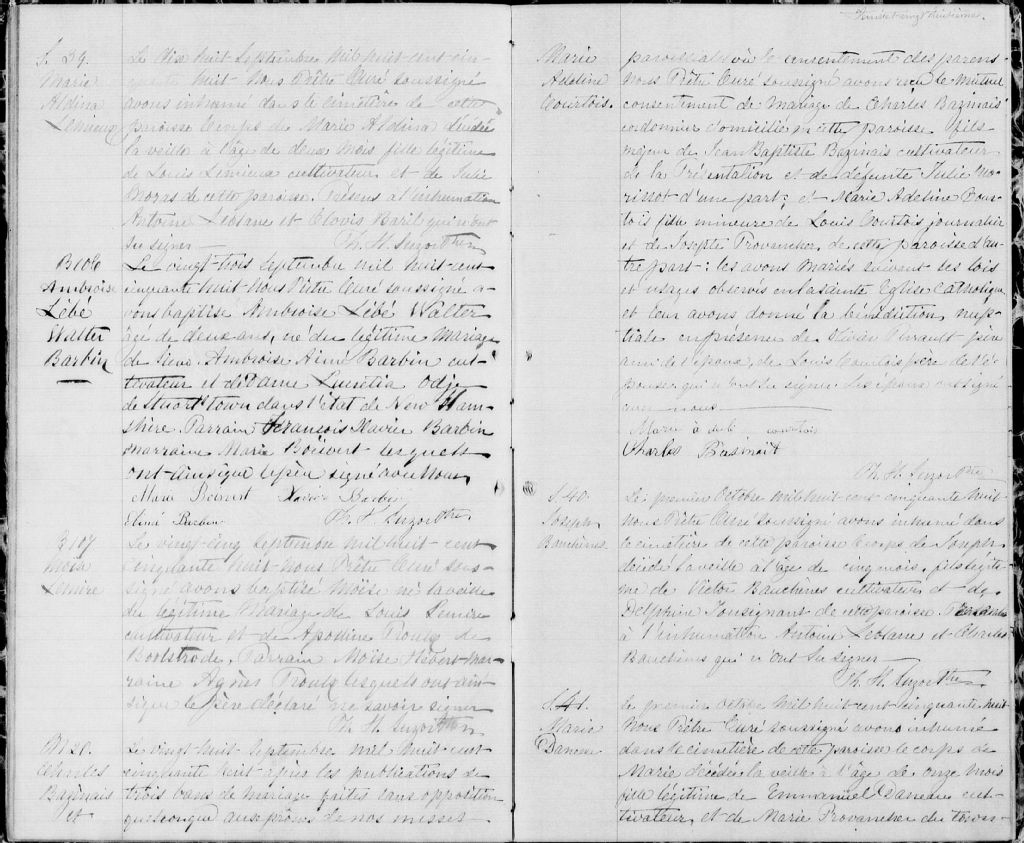 S. 39.
Marie
Aldina
Lemieux
Le dix huit Septembre mil huit cent cin-
quante huit Nous Prêtre Curé soussigné
avons inhumé dans le cimétière de cette
paroisse le corps de Marie Aldina décédée
la veille à l'âge de deux mois fille légitime
de Louis Lemieux cultivateur et de Julie
Moras de cette paroisse. Présens à l'inhumation
Antoine Leblanc et Clovis Baril qui n'ont
su signer
Ph. H. Suzor Ptre
B106
Ambroise
Lébé
Walter
Barbin
Le vingt trois Septembre mil huit cent
cinquante huit Nous Prêtre Curé soussigné a-
vons baptisé Ambroise Lébé Walter
âgé de deux ans, né du légitime Mariage
de Sieur Ambroise Aimé Barbin cul-
tivateur et de Dame Lucretia Odje
de Stuart town dans l'état de New Ham-
shire. Parrain François Xavier Barbin
Marraine Marie Boisvert lesquels
ont ainsi que le père signé avec Nous
Marie Boisvert Xavier Barbin
Barbin Ph. H. Suzor Ptre
B107
Moïse
Lemire
Le vingt cinq Septembre mil huit cent
cinquante huit Nous Prêtre Curé sous-
signé avons baptisé Moïse né la veille
du légitime Mariage de Louis Lemire
cultivateur et de Apolline Proulx de
Bulstrode. Parrain Moïse Hébert Mar-
raine Agnès Proulx lesquels ont ain-
si que le père déclaré ne savoir signer
Ph. H. Suzor Ptre
M 20.
Charles
Bazinais
et
Le vingt huit Septembre mil huit cent
cinquante huit après les publications de
trois bans de mariage faites sans opposition
quelconque aux prônes de nos messes
Marie
Adeline
Courtois.
paroissiales vu le consentement des parens
Nous Prêtre Curé soussigné avons reçu le mutuel
consentement de mariage de Charles Bazinais
cordonnier domicilié en cette paroisse fils
majeur de Jean Baptiste Bazinais cultivateur
de la Présentation et de défunte Julie Mo-
rissot d'une part; et Marie Adeline Cour-
tois fille mineure de Louis Courtois journalier
et de Josephte Provencher de cette paroisse d'au-
tre part: les avons Mariés suivant les lois
et usages observés en la sainte Eglise Catholique
et leur avons donné la bénédiction nup-
tiale en présence de Perrault
ami de l'époux, de Louis Courtois père de l'é-
pouse, qui n'ont su signer. Les époux ont signé
avec nous
Marie courtois
Charles Basinait
Ph. H. Suzor Ptre
S. 40.
Joseph
Bauchènes
Le premier Octobre mil huit cent cinquante huit
Nous Prêtre Curé soussigné avons inhumé dans
le cimétière de cette paroisse le corps de Joseph
décédé la veille à l'âge de cinq mois, fils légiti-
me de Victor Bauchènes cultivateur et de
Delphine Tousignant de cette paroisse. Présens
à l'inhumation Antoine Leblanc et Charles
Bauchènes qui n'ont su signer
Ph. H. Suzor Ptre
S. 41.
Marie
Daneau
Le premier Octobre mil huit cent cinquante huit
Nous Prêtre Curé soussigné avons inhumé
dans le cimétière de cette paroisse le corps de
Marie décédée la veille à l'âge de onze mois
fille légitime de Emmanuel Daneau cul-
tivateur, et de Marie Provencher du town-